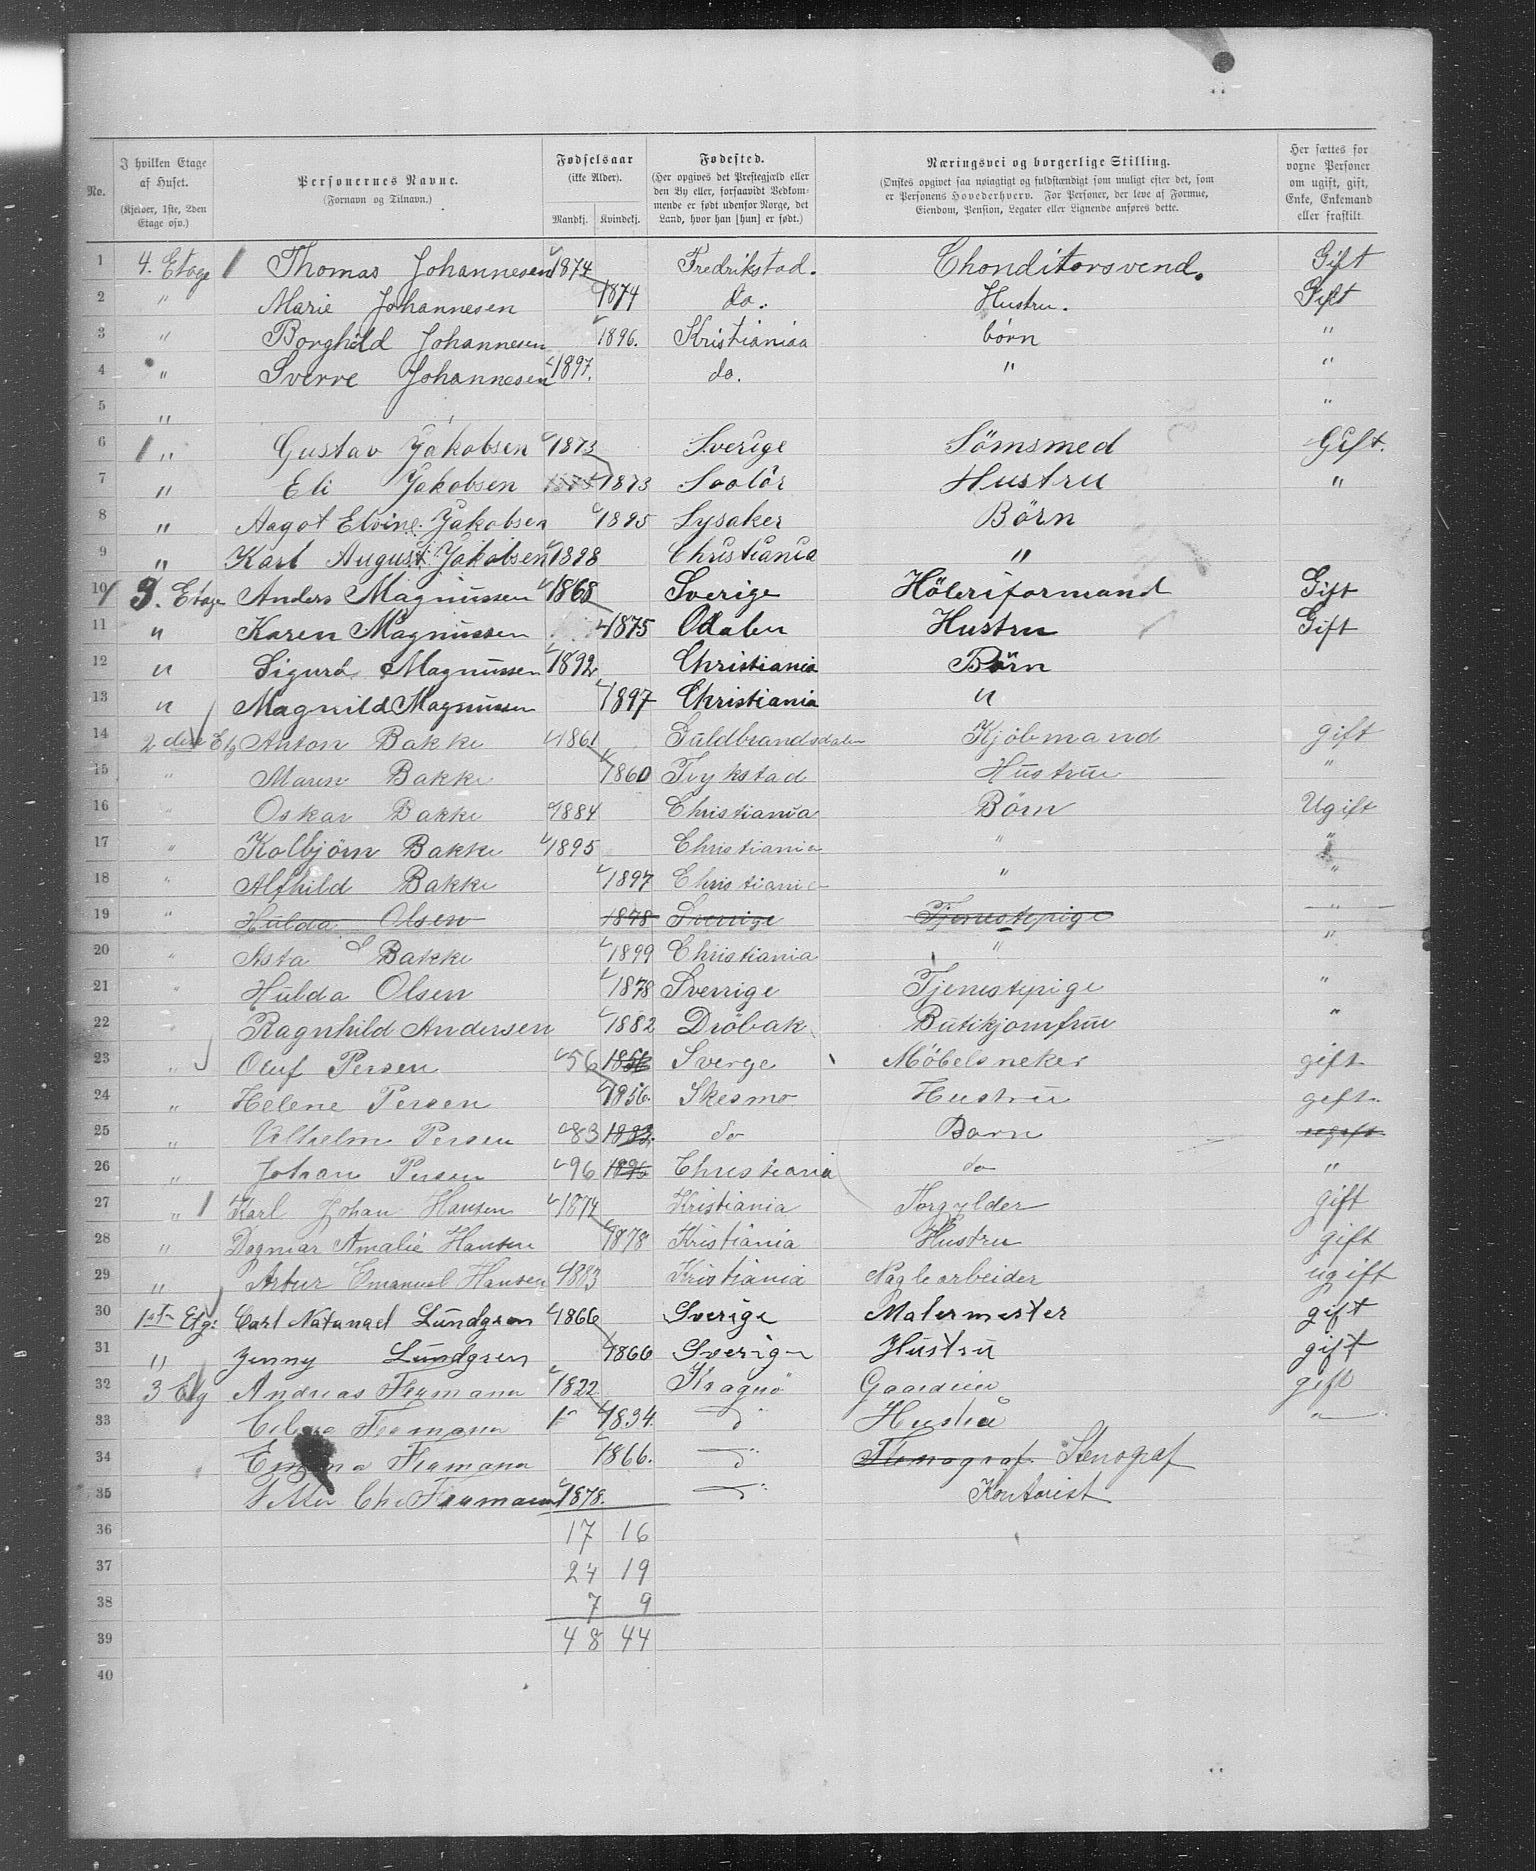 No. | I hvilken Etage af Huset. (Kjelder, 1ste, 2den Etage osv.) | Personernes Navne. (Fornavn og Tilnavn.) | Fødselsaar (ikke Alder). Mandkj. | Kvindekj. | Fødested. (Her opgives det Prestegjæld eller den By eller, forsaavidt Vedkommende er født udenfor Norge, det Land, hvor han [hun] er født.) | Næringsvei og borgerlige Stilling. (Ønskes opgivet saa nøiagtigt og fuldstændigt som muligt efter det, som er Personens Hovederhverv. For Personer, der leve af Formue, Eiendom, Pension, Legater eller Lignende anføres dette. | Her sættes for voxne Personer om ugift, gift, Enke, Enkemand eller fraskilt.
1 4. Etage Thomas Johannesen 1874 Fredrikstad. Chonditorsvend. Gift
2 " Marie Johannesen 1874 do. Hustru. Gift
3 " Borghild Johannesen 1896. Kristiania børn "
4 " Sverre Johannesen 1897. do. " "
5 " "
6 " Gustav Jakobsen 1873 Sverige Sömsmed Gift.
7 " Eli Jakobsen 1873 Soolör Hustru "
8 " Aagot Elvine Jakobsen 1895 Lysaker Börn
9 " Karl August Jakobsen 1898 Christiania "
10 3. Etage Anders Magnussen 1868 Sverige Hövleriformand Gift
11 " Karen Magnussen 1875 Odalen Hustru Gift
12 " Sigurd Magnussen 1892 Christiania Börn
13 " Magnild Magnussen 1897 Christiania "
14 2den Etg Anton Bakke 1861 Guldbrandsdalen Kjöbmand gift
15 " Maren Bakke 1860 Trykstad Hustru "
16 " Oskar Bakke 1884 Christiania Börn Ugift
17 " Kolbjörn Bakke 1895 Christiania " "
18 " Alfhild Bakke 1897 Christiania " "
19 " Hulda Olsen 1878 Sverrige Tjenestepige "
20 " Asta Bakke 1899 Christiania " "
21 " Hulda Olsen 1878 Sverrige Tjenestepige "
22 " Ragnhild Andersen 1882 Dröbak Butikjomfru "
23 " Oluf Persen 56 1856 Sverge Møbelsneker gift
24 " Helene Persen 1856 Skesmo Hustru gift
25 " Vilhelm Persen 83 1883 do Barn ugift
26 " Johan Persen 96 1896 Christiania do "
27 " Karl Johan Hansen 1874 Kristiania Forgylder gift
28 " Dagmar Amalie Hansen 1878 Kristiania Hustru gift
29 " Artur Emanuel Hansen 1883 Kristiania Naglearbeider ugift
30 1ste Etg: Carl Natanael Lundgren 1866 Sverige Malermester gift
31 " Jenny Lundgren 1866 Sverige Hustru gift
32 3 Etg Andreas 1822 Kragerø Gaardeier gift
33 1834. d Hustru "
34 Emma 1866. d Stenograf Stenograf
35 1878. d Kontorist
36 17 16
37 24 19
38 7 9
39 48 44
40